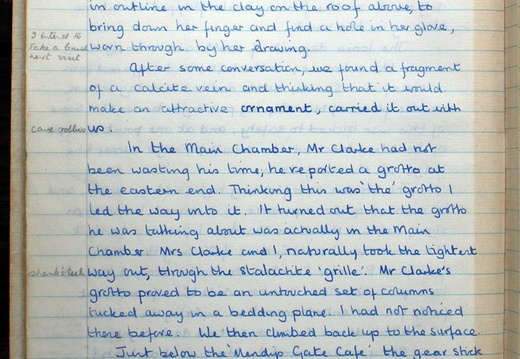 in outline in the clay on the roof above, to
bring down her finger and find a hole in her glove,
worn through by her drawing.
I intend to
take a
next visit
After some conversation, we found a fragment
of a calcite vein and thinking that it would
make an attractive ornament, carried it out with
us.
cave robbers
In the Main Chamber, Mr Clarke had not
been wasting his time, he reported a grotto at
the eastern end. Thinking this was 'the' grotto I
led the way into it. It turned out that the grotto
he was talking about was actually in the Main
Chamber. Mrs Clarke and I, naturally took the tightest
way out, through the stalactite 'grille'. Mr Clarke's
grotto proved to be an untouched set of columns
tucked away in a bedding plane. I had not noticed
these before. We then climbed back up to the surface.
Just below the 'Mendip Gate Café' the gear stick